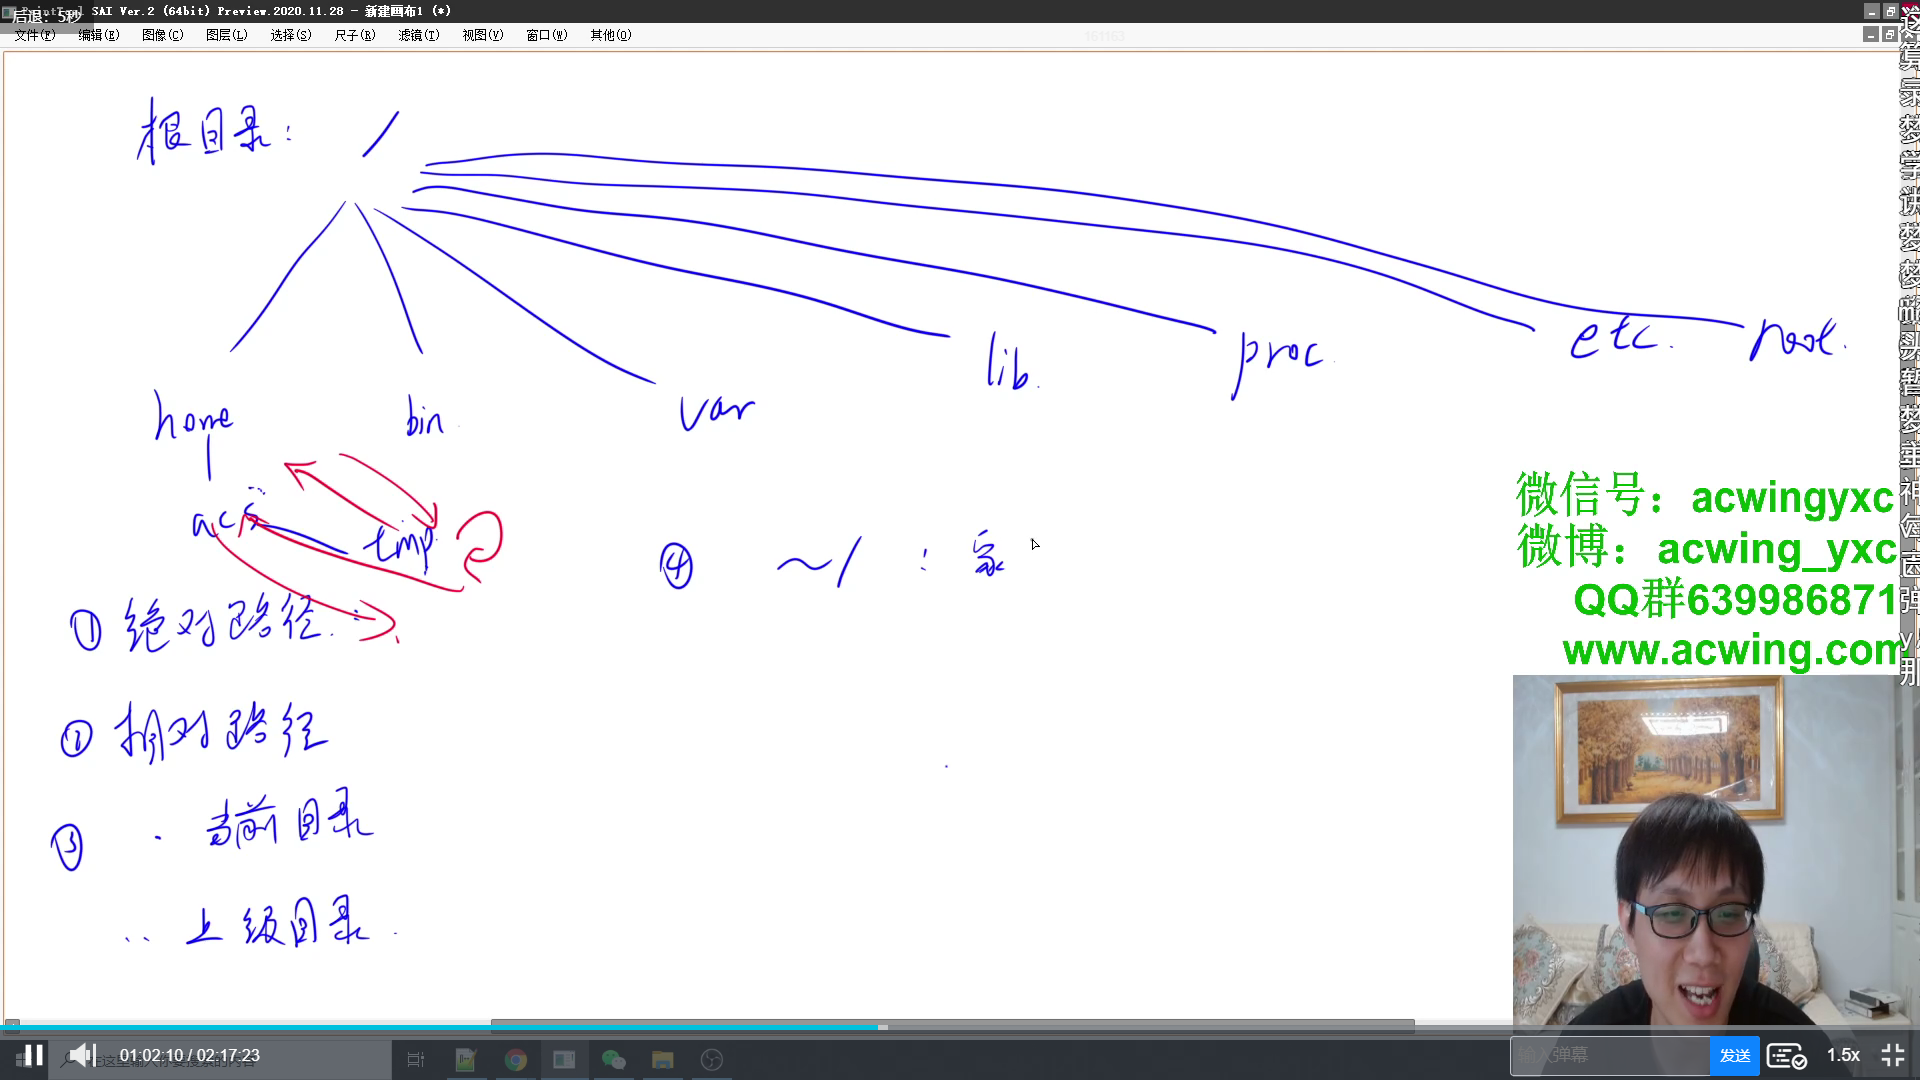 后退: 5秒
SAI Ver.2 (64bit) Preview.2020.11.28 - 新建画布1 (*)
文件(F) 编辑(E) 图像(C) 图层(L) 选择(S) 尺子(R) 滤镜(T) 视图(V) 窗口(W) 其他(O)
161163
根目录: /
home bin var lib. proc. etc. root.
acs tmp
④ ~/ : 家
① 绝对路径.
② 相对路径
③ . 当前目录
.. 上级目录.
微信号：acwingyxc
微博：acwing_yxc
QQ群639986871
www.acwing.com
01:02:10 / 02:17:23
在这里输入你要搜索的内容
输入弹幕 发送 1.5x